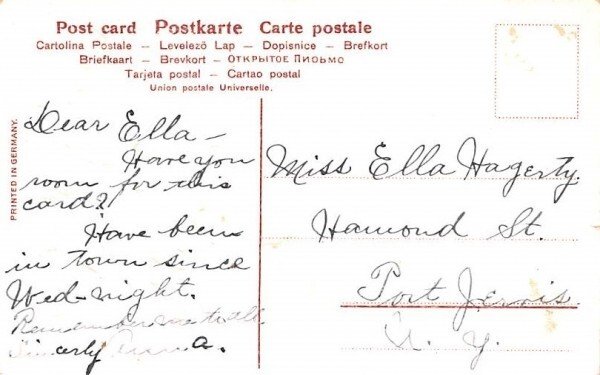 Post card Postkarte Carte postale
Cartolina Postale – Levelező Lap – Dopisnice – Brefkort
Briefkaart – Brevkort – ОТКРЫТОЕ ПИСЬМО
Tarjeta postal – Cartao postal
Union postale Universelle.
PRINTED IN GERMANY.
Dear Ella –
Have you
room for this
card?
Have been
in town since
Wed-night.
Remember me to all
Sincerly Anna.
Miss Ella Hagerty.
Hamond St.
Port Jervis
N. Y.